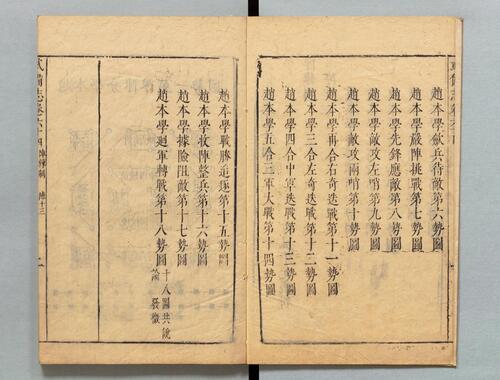 趙本學歛兵待敵第六勢圖
趙本學嚴陣挑戰第七勢圖
趙本學先鋒應敵第八勢圖
趙本學敵攻左哨第九勢圖
趙本學敵攻兩哨第十勢圖
趙本學再合右奇迭戰第十一勢圖
趙本學三合左奇迭戰第十二勢圖
趙本學四合中軍迭戰第十三勢圖
趙本學五合三軍大戰第十四勢圖
趙本學戰勝追逐第十五勢圖
趙本學收陣整兵第十六勢圖
趙本學據險阻敵第十七勢圖
趙本學廻軍轉戰第十八勢圖
十八圖共說
備志卷六十四 陣練制 陣十三